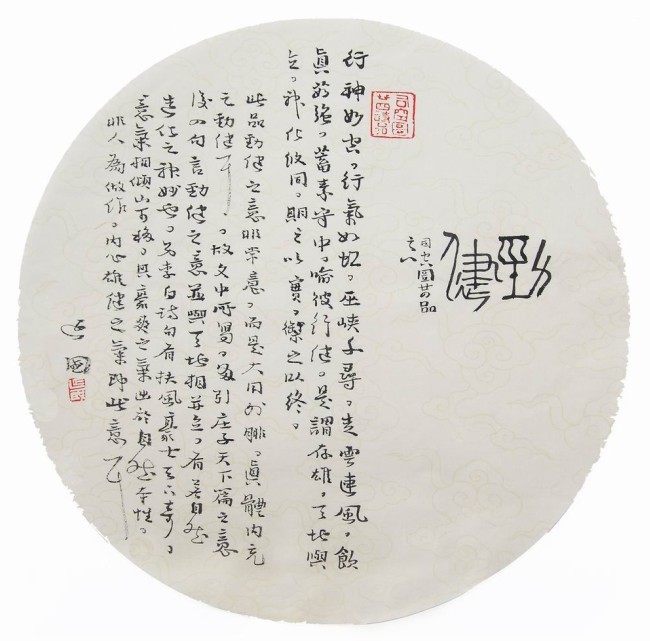 勁健
司空圖廿四品
之八
司空圖
廿四詩品
行神如空。行氣如虹。巫峽千尋。走雲連風。飲
真茹強。蓄素守中。喻彼行健。是謂存雄。天地與
立。神化攸同。期之以實。禦之以終。
此品勁健之意非常意。而是大用外腓。眞體内充
之勁健耳。故文中所寫。多引庄子天下篇之意
後四句言勁健之意並與天地相并立。有若自然
造化之神妙也。又李白詩句有扶風豪士天下奇。
意氣相傾山可移。其豪爽之氣出於自然本性。
非人為做作。内心雄健之氣即此意耳
國